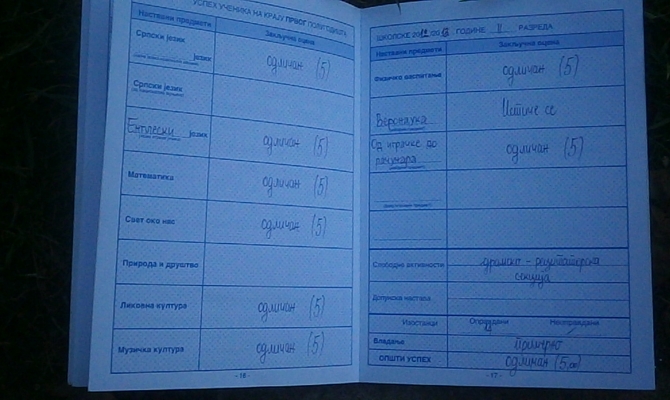 УСПЕХ УЧЕНИКА НА КРАЈУ ПРВОГ ПОЛУГОДИШТА
Наставни предмети
Закључна оцена
Српски језик
језик
одличан (5)
Српски језик
Енглески језик
одличан (5)
Математика
одличан (5)
Свет око нас
одличан (5)
Природа и друштво
Ликовна култура
одличан (5)
Музичка култура
одличан (5)
- 16 -
ШКОЛСКЕ ГОДИНЕ II РАЗРЕДА
Наставни предмети
Закључна оцена
Физичко васпитање
одличан (5)
Веронаука
Истиче се
Од играчке до
рачунара
одличан (5)
Слободне активности
драмско - рецитаторска
секција
Допунска настава
Изостанци
Оправдани
Неоправдани
Владање
Примерно
ОПШТИ УСПЕХ
одличан (5,00)
- 17 -